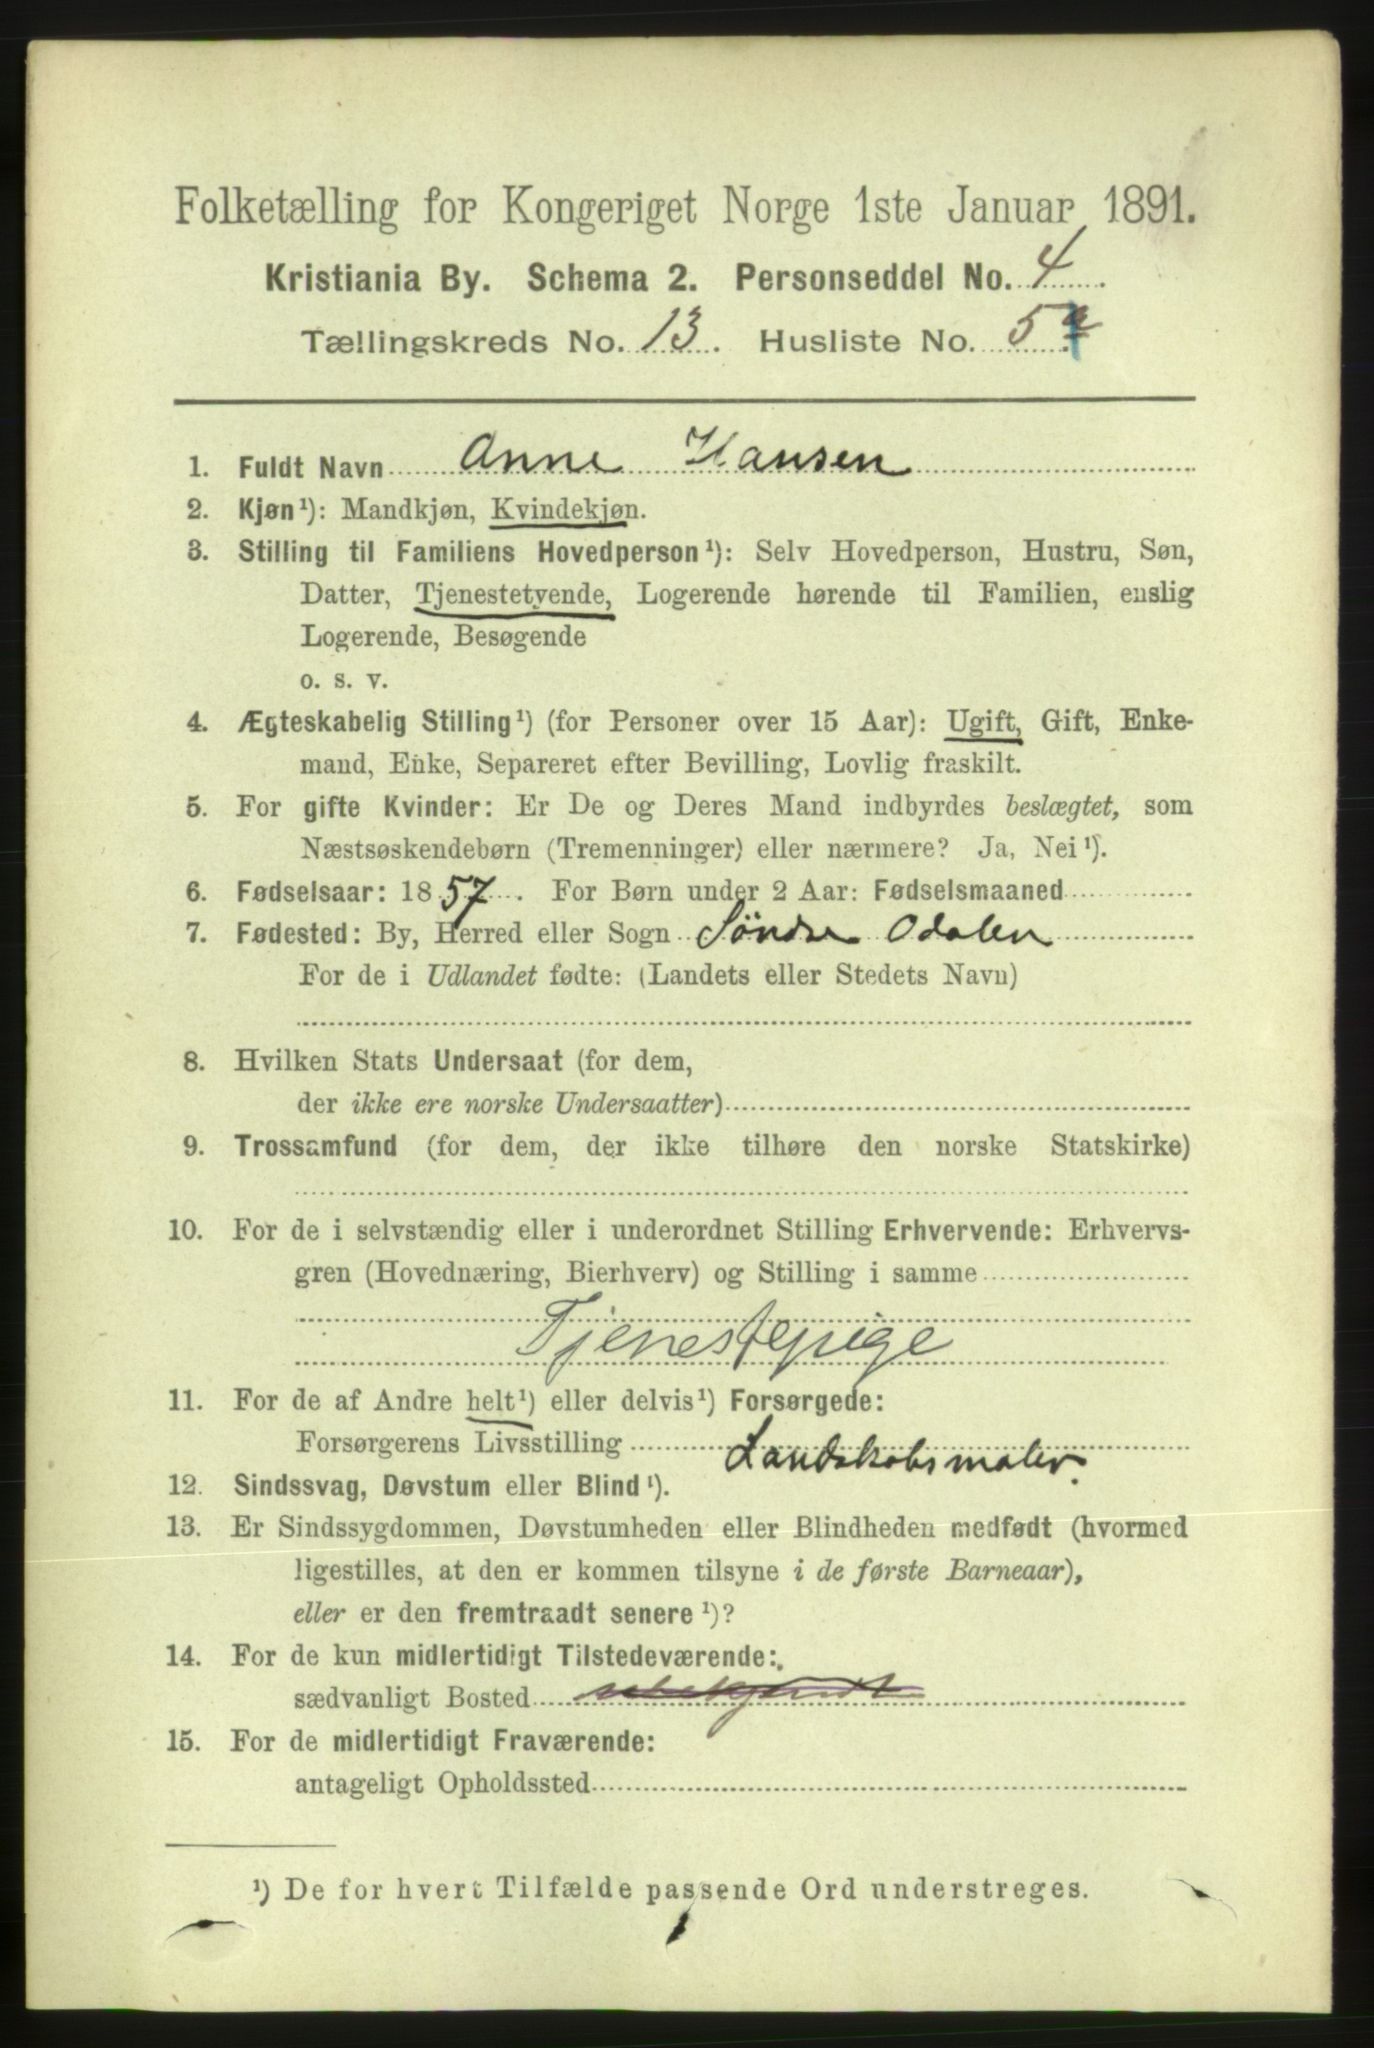 Folketælling for Kongeriget Norge 1ste Januar 1891.
Kristiania By. Schema 2. Personseddel No. 4
Tællingskreds No. 13. Husliste No. 5a
1. Fuldt Navn Anne Hansen
2. Kjøn¹): Mandkjøn, Kvindekjøn.
3. Stilling til Familiens Hovedperson¹): Selv Hovedperson, Hustru, Søn,
Datter, Tjenestetyende, Logerende hørende til Familien, enslig
Logerende, Besøgende
o. s. v.
4. Ægteskabelig Stilling¹) (for Personer over 15 Aar): Ugift, Gift, Enke-
mand, Enke, Separeret efter Bevilling, Lovlig fraskilt.
5. For gifte Kvinder: Er De og Deres Mand indbyrdes beslægtet, som
Næstsøskendebørn (Tremenninger) eller nærmere? Ja, Nei¹).
6. Fødselsaar: 1857. For Børn under 2 Aar: Fødselsmaaned
7. Fødested: By, Herred eller Sogn Söndre Odalen
For de i Udlandet fødte: (Landets eller Stedets Navn)
8. Hvilken Stats Undersaat (for dem,
der ikke ere norske Undersaatter)
9. Trossamfund (for dem, der ikke tilhøre den norske Statskirke)
10. For de i selvstændig eller i underordnet Stilling Erhvervende: Erhvervs-
gren (Hovednæring, Bierhverv) og Stilling i samme
Tjenestepige
11. For de af Andre helt¹) eller delvis¹) Forsørgede:
Forsørgerens Livsstilling Landskabsmaler.
12. Sindssvag, Døvstum eller Blind¹).
13. Er Sindssygdommen, Døvstumheden eller Blindheden medfødt (hvormed
ligestilles, at den er kommen tilsyne i de første Barneaar),
eller er den fremtraadt senere¹)?
14. For de kun midlertidigt Tilstedeværende:
sædvanligt Bosted
15. For de midlertidigt Fraværende:
antageligt Opholdssted
¹) De for hvert Tilfælde passende Ord understreges.